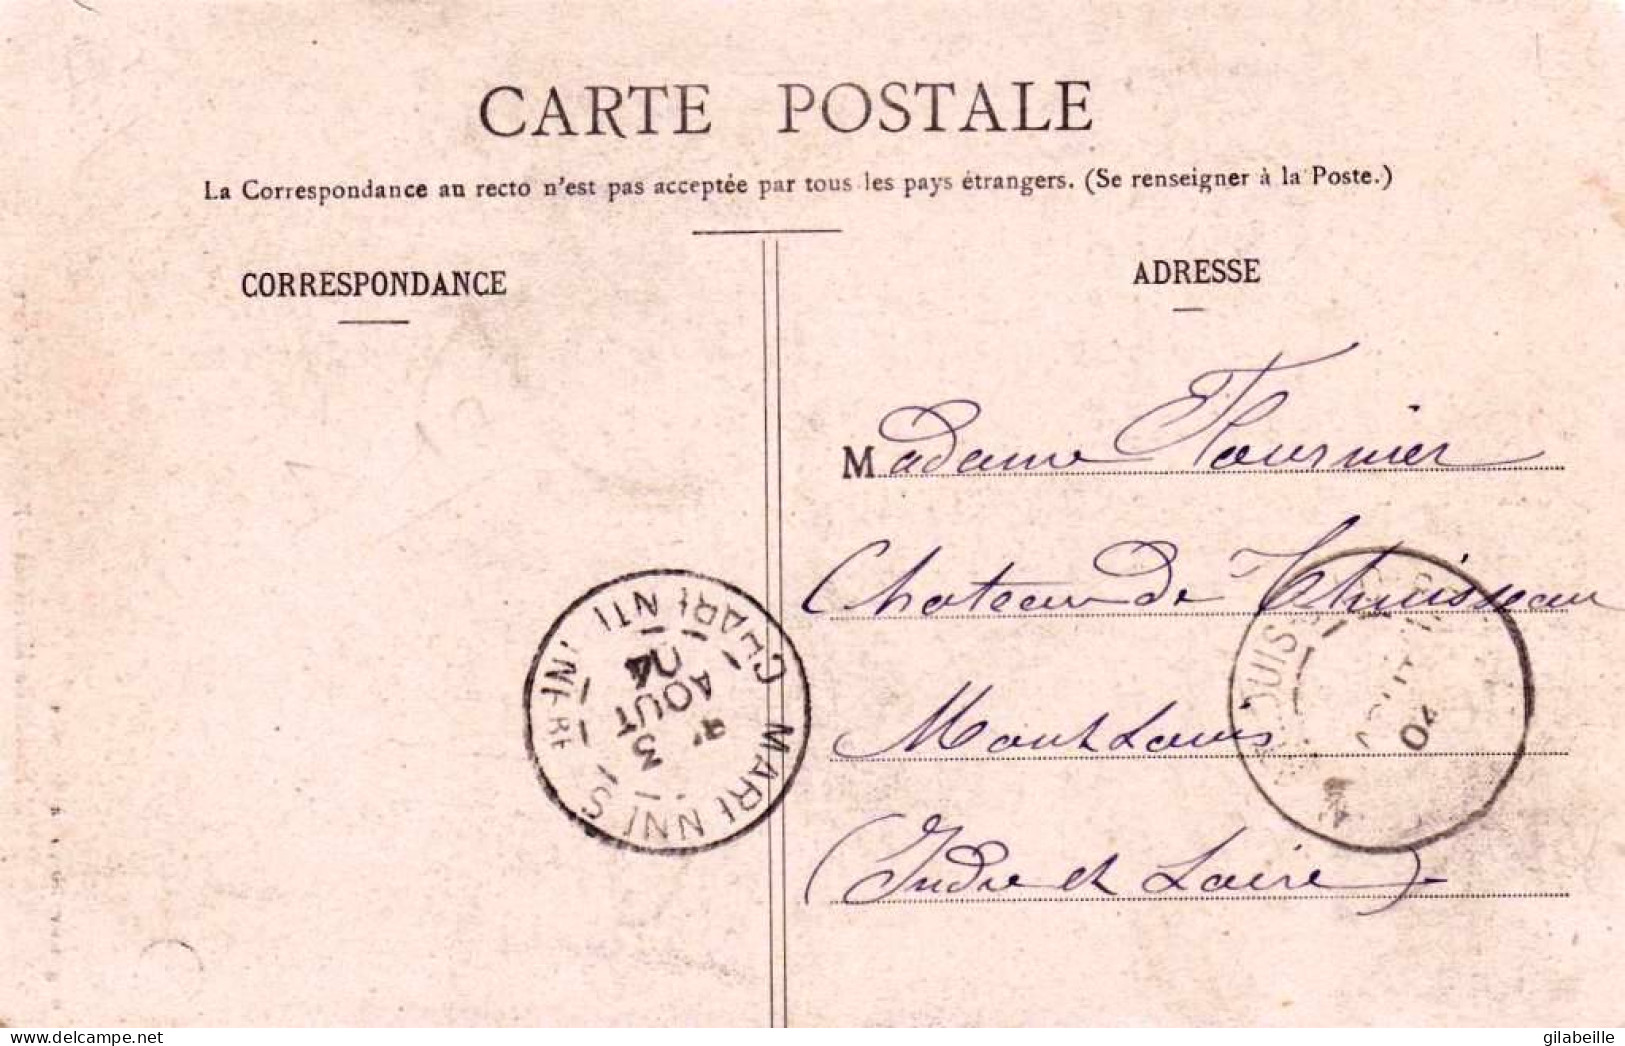 CARTE POSTALE
La Correspondance au recto n'est pas acceptée par tous les pays étrangers. (Se renseigner à la Poste.)
CORRESPONDANCE
ADRESSE
Madame Fournier
Chateau de Thuisseau
Mont Louis
(Indre et Loire)
MARENNES
3
AOUT
04
OUIS
04
delcampe.net
gilabeille